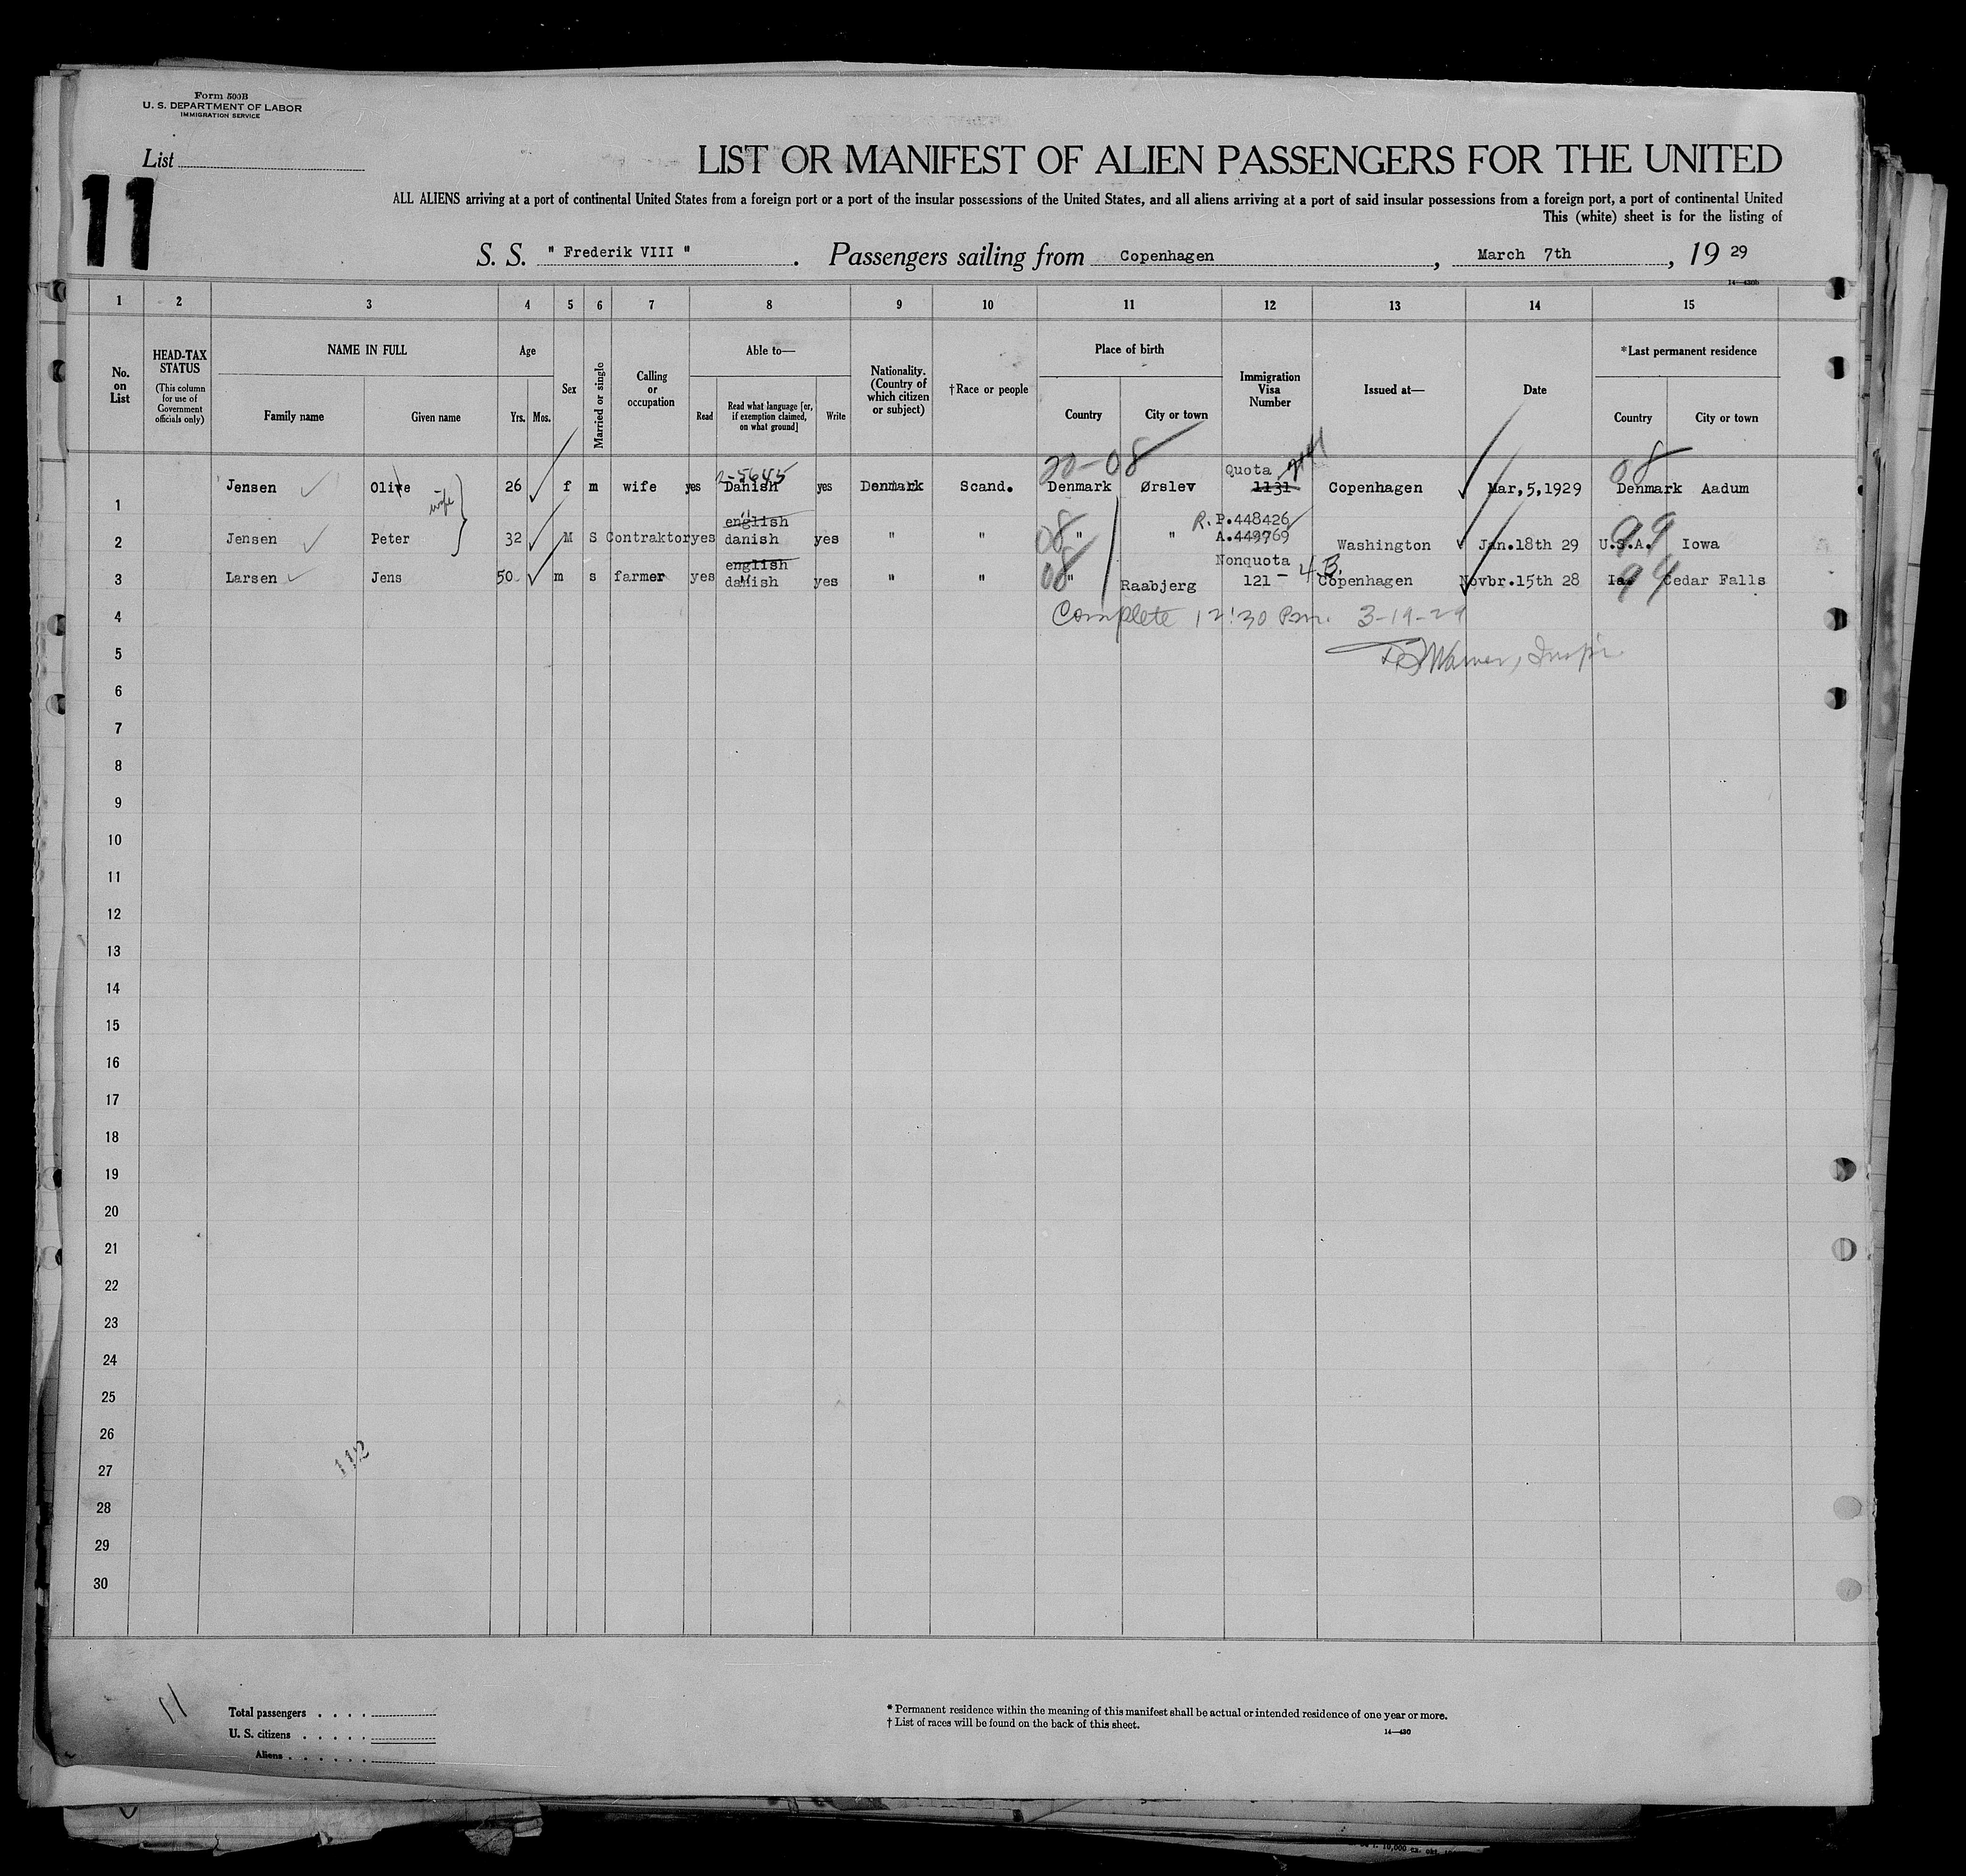 Form 500B
U. S. DEPARTMENT OF LABOR
IMMIGRATION SERVICE
List
11
LIST OR MANIFEST OF ALIEN PASSENGERS FOR THE UNITED
ALL ALIENS arriving at a port of continental United States from a foreign port or a port of the insular possessions of the United States, and all aliens arriving at a port of said insular possessions from a foreign port, a port of continental United
This (white) sheet is for the listing of
S. S. " Frederik VIII " . Passengers sailing from Copenhagen , March 7th , 19 29
1 2 3 4 5 6 7 8 9 10 11 12 13 14 15
No. on List
HEAD-TAX STATUS
(This column for use of Government officials only)
NAME IN FULL
Family name Given name
Age
Yrs. Mos.
Sex
Married or single
Calling or occupation
Able to—
Read
Read what language [or, if exemption claimed, on what ground]
Write
Nationality. (Country of which citizen or subject)
†Race or people
Place of birth
Country City or town
Immigration Visa Number
Issued at—
Date
*Last permanent residence
Country City or town
1 Jensen Olive 26 f m wife yes 2-5645 Danish yes Denmark Scand. 20-08 Denmark Ørslev Quota 1131 Copenhagen Mar,5,1929 08 Denmark Aadum
wife
2 Jensen Peter 32 M S Contraktor yes english danish yes " " 08 " " R.P.448426 A.449769 Washington Jan.18th 29 U.S.A. 99 Iowa
3 Larsen Jens 50 m s farmer yes english danish yes " " 08 " Raabjerg Nonquota 121 - 4 B. Copenhagen Novbr.15th 28 Ia. 99 Cedar Falls
4 Complete 12:30 Pm. 3-19-29
5
6
7
8
9
10
11
12
13
14
15
16
17
18
19
20
21
22
23
24
25
26
27
28
29
30
11
Total passengers . . . .
U. S. citizens . . . . .
Aliens . . . . . .
* Permanent residence within the meaning of this manifest shall be actual or intended residence of one year or more.
† List of races will be found on the back of this sheet.
14—430